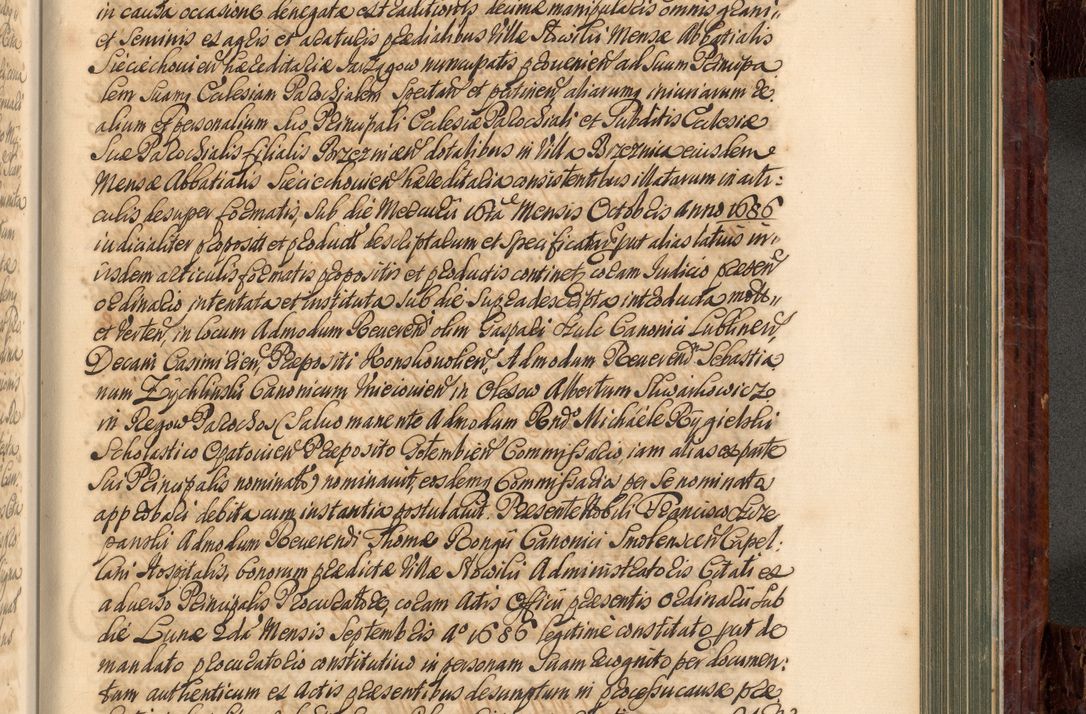 in causa occasione denegatæ extraditionis decimæ manipularis omnis grani„
et Seminis ex agris et araturis prædialibus Villæ Słowiki Mensæ Abbatialis
Sieciechovien hæreditariæ nuncupatis provenien ad Suum Principa
lem Suamq Ecclesiam Parochialem Spectan et pertinen aliarumq iniuriarum re
alium et personalium Suo Principali Ecclesiæ Parochiali et Subditis Ecclesiæ
Suæ Parochialis filialis Brzeznicen dotalibus in Villa Brzeznica eiusdem
Mensæ Abbatialis Sieciechovien hæreditaria consistentibus illatarum in arti:
culis desuper formatis, Sub die Mercurii 16ta Mensis Octobris Anno 1686
iudicialiter proposit et product descriptarum et Specificatarq; put alias latius in„
iisdem articulis formatis propositis et productis continet, coram Iudicio præsen
ordinario intentata et instituta Sub die Supradescripta introducta mota„
et Verten, in locum Admodum Reverend olim Gaspari Canonici Lublinen
Decani Casimirien, Præpositi Konskowolien, Admodum Reverend Sebastia
num Zychlinski Canonicum in Olesow Albertum
in Regow Parochos (Salvo manente Admodum Rndo Michaele Rygielski
Scholastico Opatovien Præposito Gotembien Commissario iam alias ex parte
Sui Principalis nominato) nominavit, eosdemq Commissarios per Se nominatos
approbari debita cum instantia postulavit. Præsente Nobili Francisco
Admodum Reverendi Thomæ Canonici Smolenscen Capel:
lani Hospitalis, bonorum prædictæ Villæ Słowiki Administratoris Citati ex
adverso Principalis Procuratore, coram Actis Officii præsentis ordinarii Sub
die Lunæ 2da Mensis Septembris Ao 1686 legitime constituto, put de
mandato procuratorio constitutivo in personam Suam recognito per documen:
tum authenticum ex Actis præsentibus desumptum in processu causæ præ